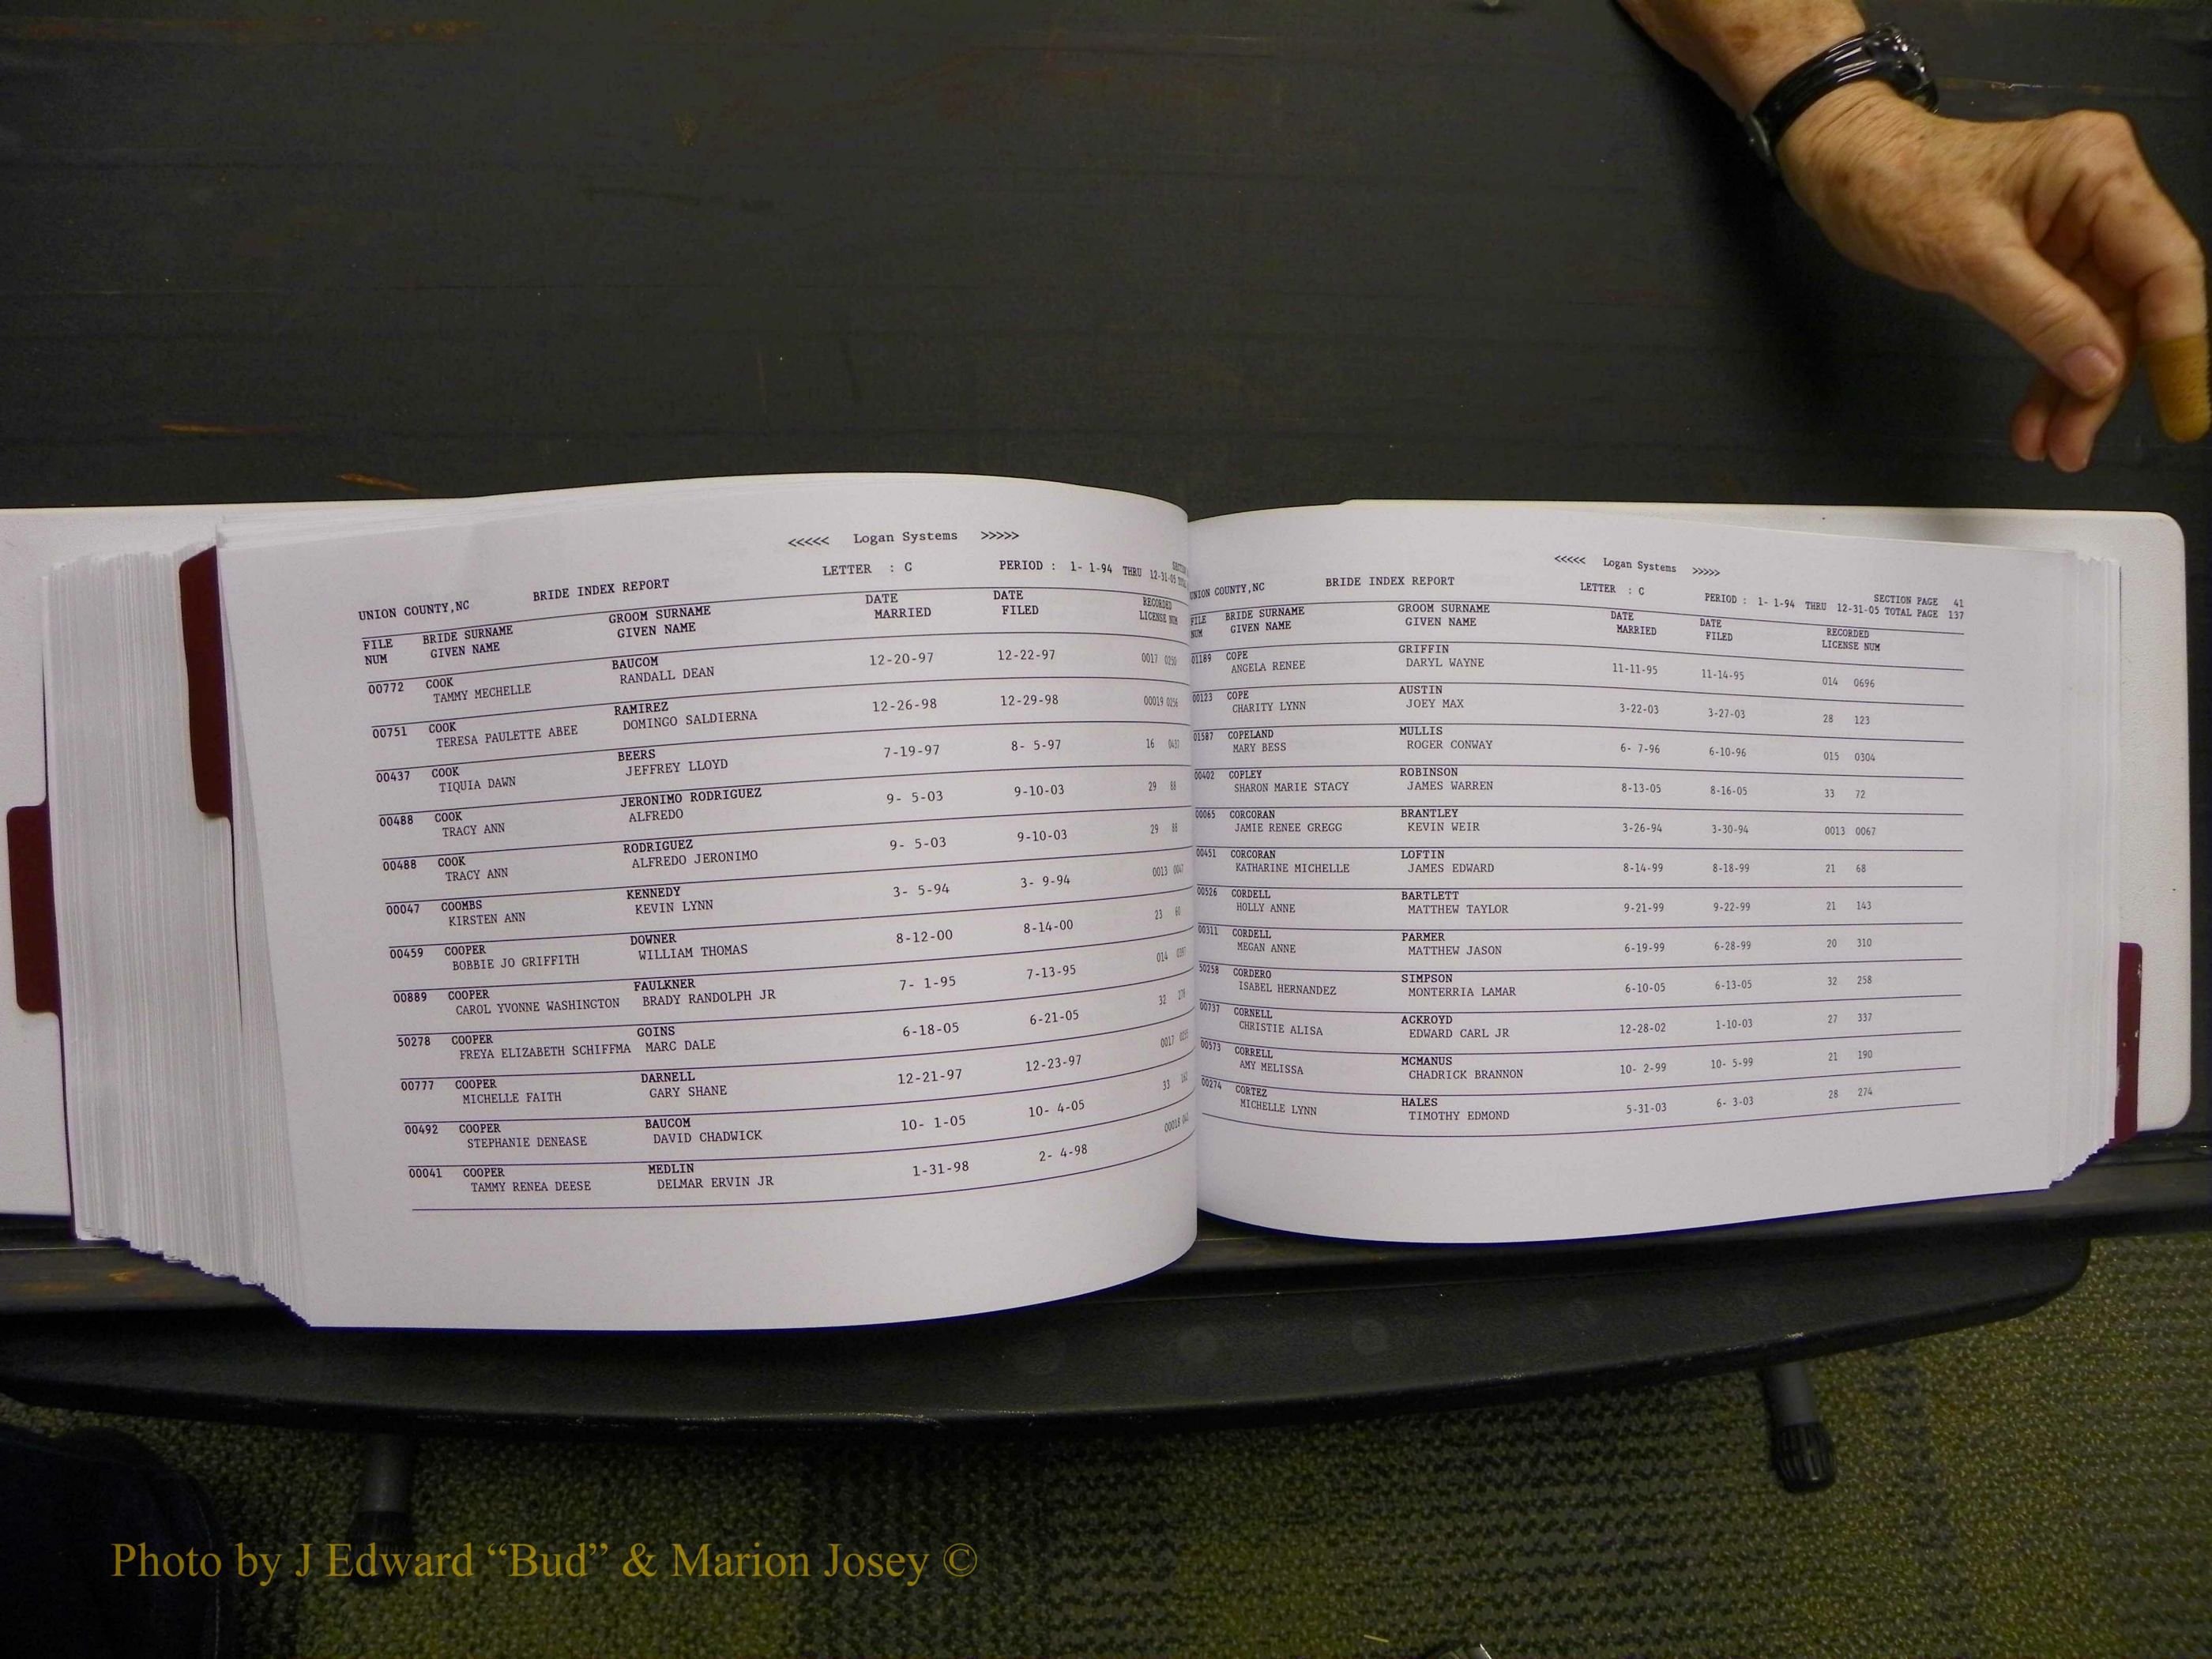 <<<<< Logan Systems >>>>>
UNION COUNTY,NC BRIDE INDEX REPORT LETTER : C PERIOD : 1- 1-94 THRU 12-31-05
FILE BRIDE SURNAME GROOM SURNAME DATE DATE RECORDED
NUM GIVEN NAME GIVEN NAME MARRIED FILED LICENSE NUM
00772 COOK BAUCOM 12-20-97 12-22-97 0017
TAMMY MECHELLE RANDALL DEAN
00751 COOK RAMIREZ 12-26-98 12-29-98 00019
TERESA PAULETTE ABEE DOMINGO SALDIERNA
00437 COOK BEERS 7-19-97 8- 5-97 16
TIQUIA DAWN JEFFREY LLOYD
00488 COOK JERONIMO RODRIGUEZ 9- 5-03 9-10-03 29 88
TRACY ANN ALFREDO
00488 COOK RODRIGUEZ 9- 5-03 9-10-03 29 88
TRACY ANN ALFREDO JERONIMO
00047 COOMBS KENNEDY 3- 5-94 3- 9-94 0013 0047
KIRSTEN ANN KEVIN LYNN
00459 COOPER DOWNER 8-12-00 8-14-00 23
BOBBIE JO GRIFFITH WILLIAM THOMAS
00889 COOPER FAULKNER 7- 1-95 7-13-95 014
CAROL YVONNE WASHINGTON BRADY RANDOLPH JR
50278 COOPER GOINS 6-18-05 6-21-05 32 278
FREYA ELIZABETH SCHIFFMA MARC DALE
00777 COOPER DARNELL 12-21-97 12-23-97 0017
MICHELLE FAITH GARY SHANE
00492 COOPER BAUCOM 10- 1-05 10- 4-05 33
STEPHANIE DENEASE DAVID CHADWICK
00041 COOPER MEDLIN 1-31-98 2- 4-98 00018
TAMMY RENEA DEESE DELMAR ERVIN JR
<<<<< Logan Systems >>>>>
UNION COUNTY,NC BRIDE INDEX REPORT LETTER : C SECTION PAGE 41
PERIOD : 1- 1-94 THRU 12-31-05 TOTAL PAGE 137
FILE BRIDE SURNAME GROOM SURNAME DATE DATE RECORDED
NUM GIVEN NAME GIVEN NAME MARRIED FILED LICENSE NUM
01189 COPE GRIFFIN 11-11-95 11-14-95 014 0696
ANGELA RENEE DARYL WAYNE
00123 COPE AUSTIN 3-22-03 3-27-03 28 123
CHARITY LYNN JOEY MAX
01587 COPELAND MULLIS 6- 7-96 6-10-96 015 0304
MARY BESS ROGER CONWAY
00402 COPLEY ROBINSON 8-13-05 8-16-05 33 72
SHARON MARIE STACY JAMES WARREN
00065 CORCORAN BRANTLEY 3-26-94 3-30-94 0013 0067
JAMIE RENEE GREGG KEVIN WEIR
00451 CORCORAN LOFTIN 8-14-99 8-18-99 21 68
KATHARINE MICHELLE JAMES EDWARD
00526 CORDELL BARTLETT 9-21-99 9-22-99 21 143
HOLLY ANNE MATTHEW TAYLOR
00311 CORDELL PARMER 6-19-99 6-28-99 20 310
MEGAN ANNE MATTHEW JASON
50258 CORDERO SIMPSON 6-10-05 6-13-05 32 258
ISABEL HERNANDEZ MONTERRIA LAMAR
00737 CORNELL ACKROYD 12-28-02 1-10-03 27 337
CHRISTIE ALISA EDWARD CARL JR
00573 CORRELL MCMANUS 10- 2-99 10- 5-99 21 190
AMY MELISSA CHADRICK BRANNON
00274 CORTEZ HALES 5-31-03 6- 3-03 28 274
MICHELLE LYNN TIMOTHY EDMOND
Photo by J Edward “Bud” & Marion Josey ©